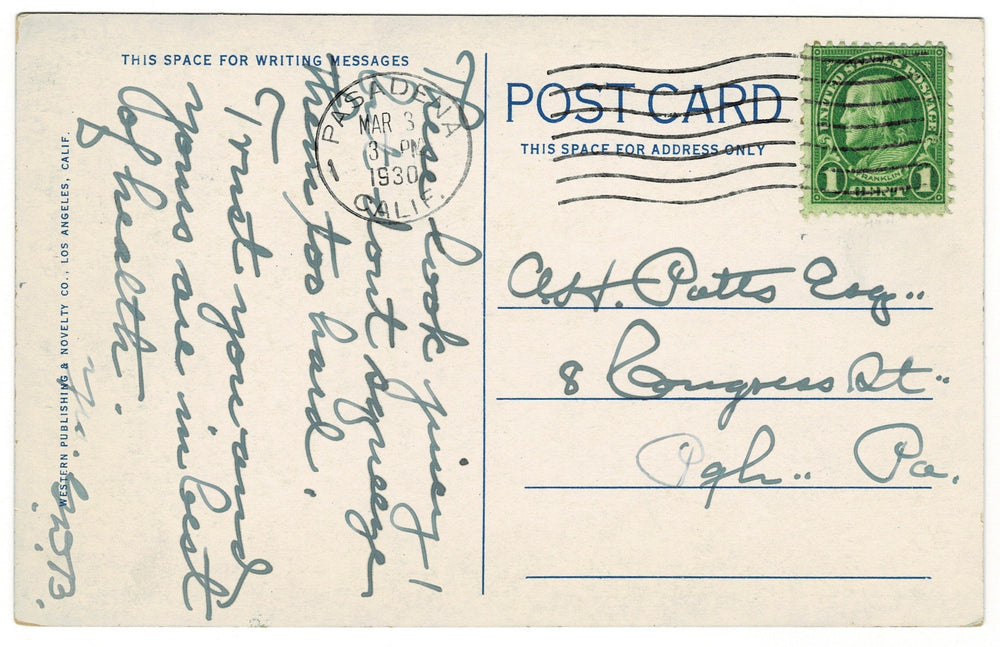 THIS SPACE FOR WRITING MESSAGES
These look juicy!
dont squeeze
them too hard.
Trust you and
yours are in best
of health.
WESTERN PUBLISHING & NOVELTY CO., LOS ANGELES, CALIF.
PASADENA
MAR 3
3 PM
1930
CALIF.
1
POST CARD
THIS SPACE FOR ADDRESS ONLY
UNITED STATES POSTAGE
FRANKLIN
1 CENT 1
A.H. Potts Esq..
8 Congress St..
Pgh.. Pa.